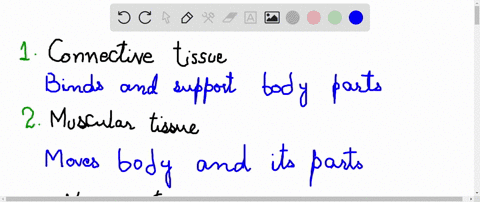 1. Connective tissue
Binds and support body parts
2. Muscular tissue
Moves body and its parts